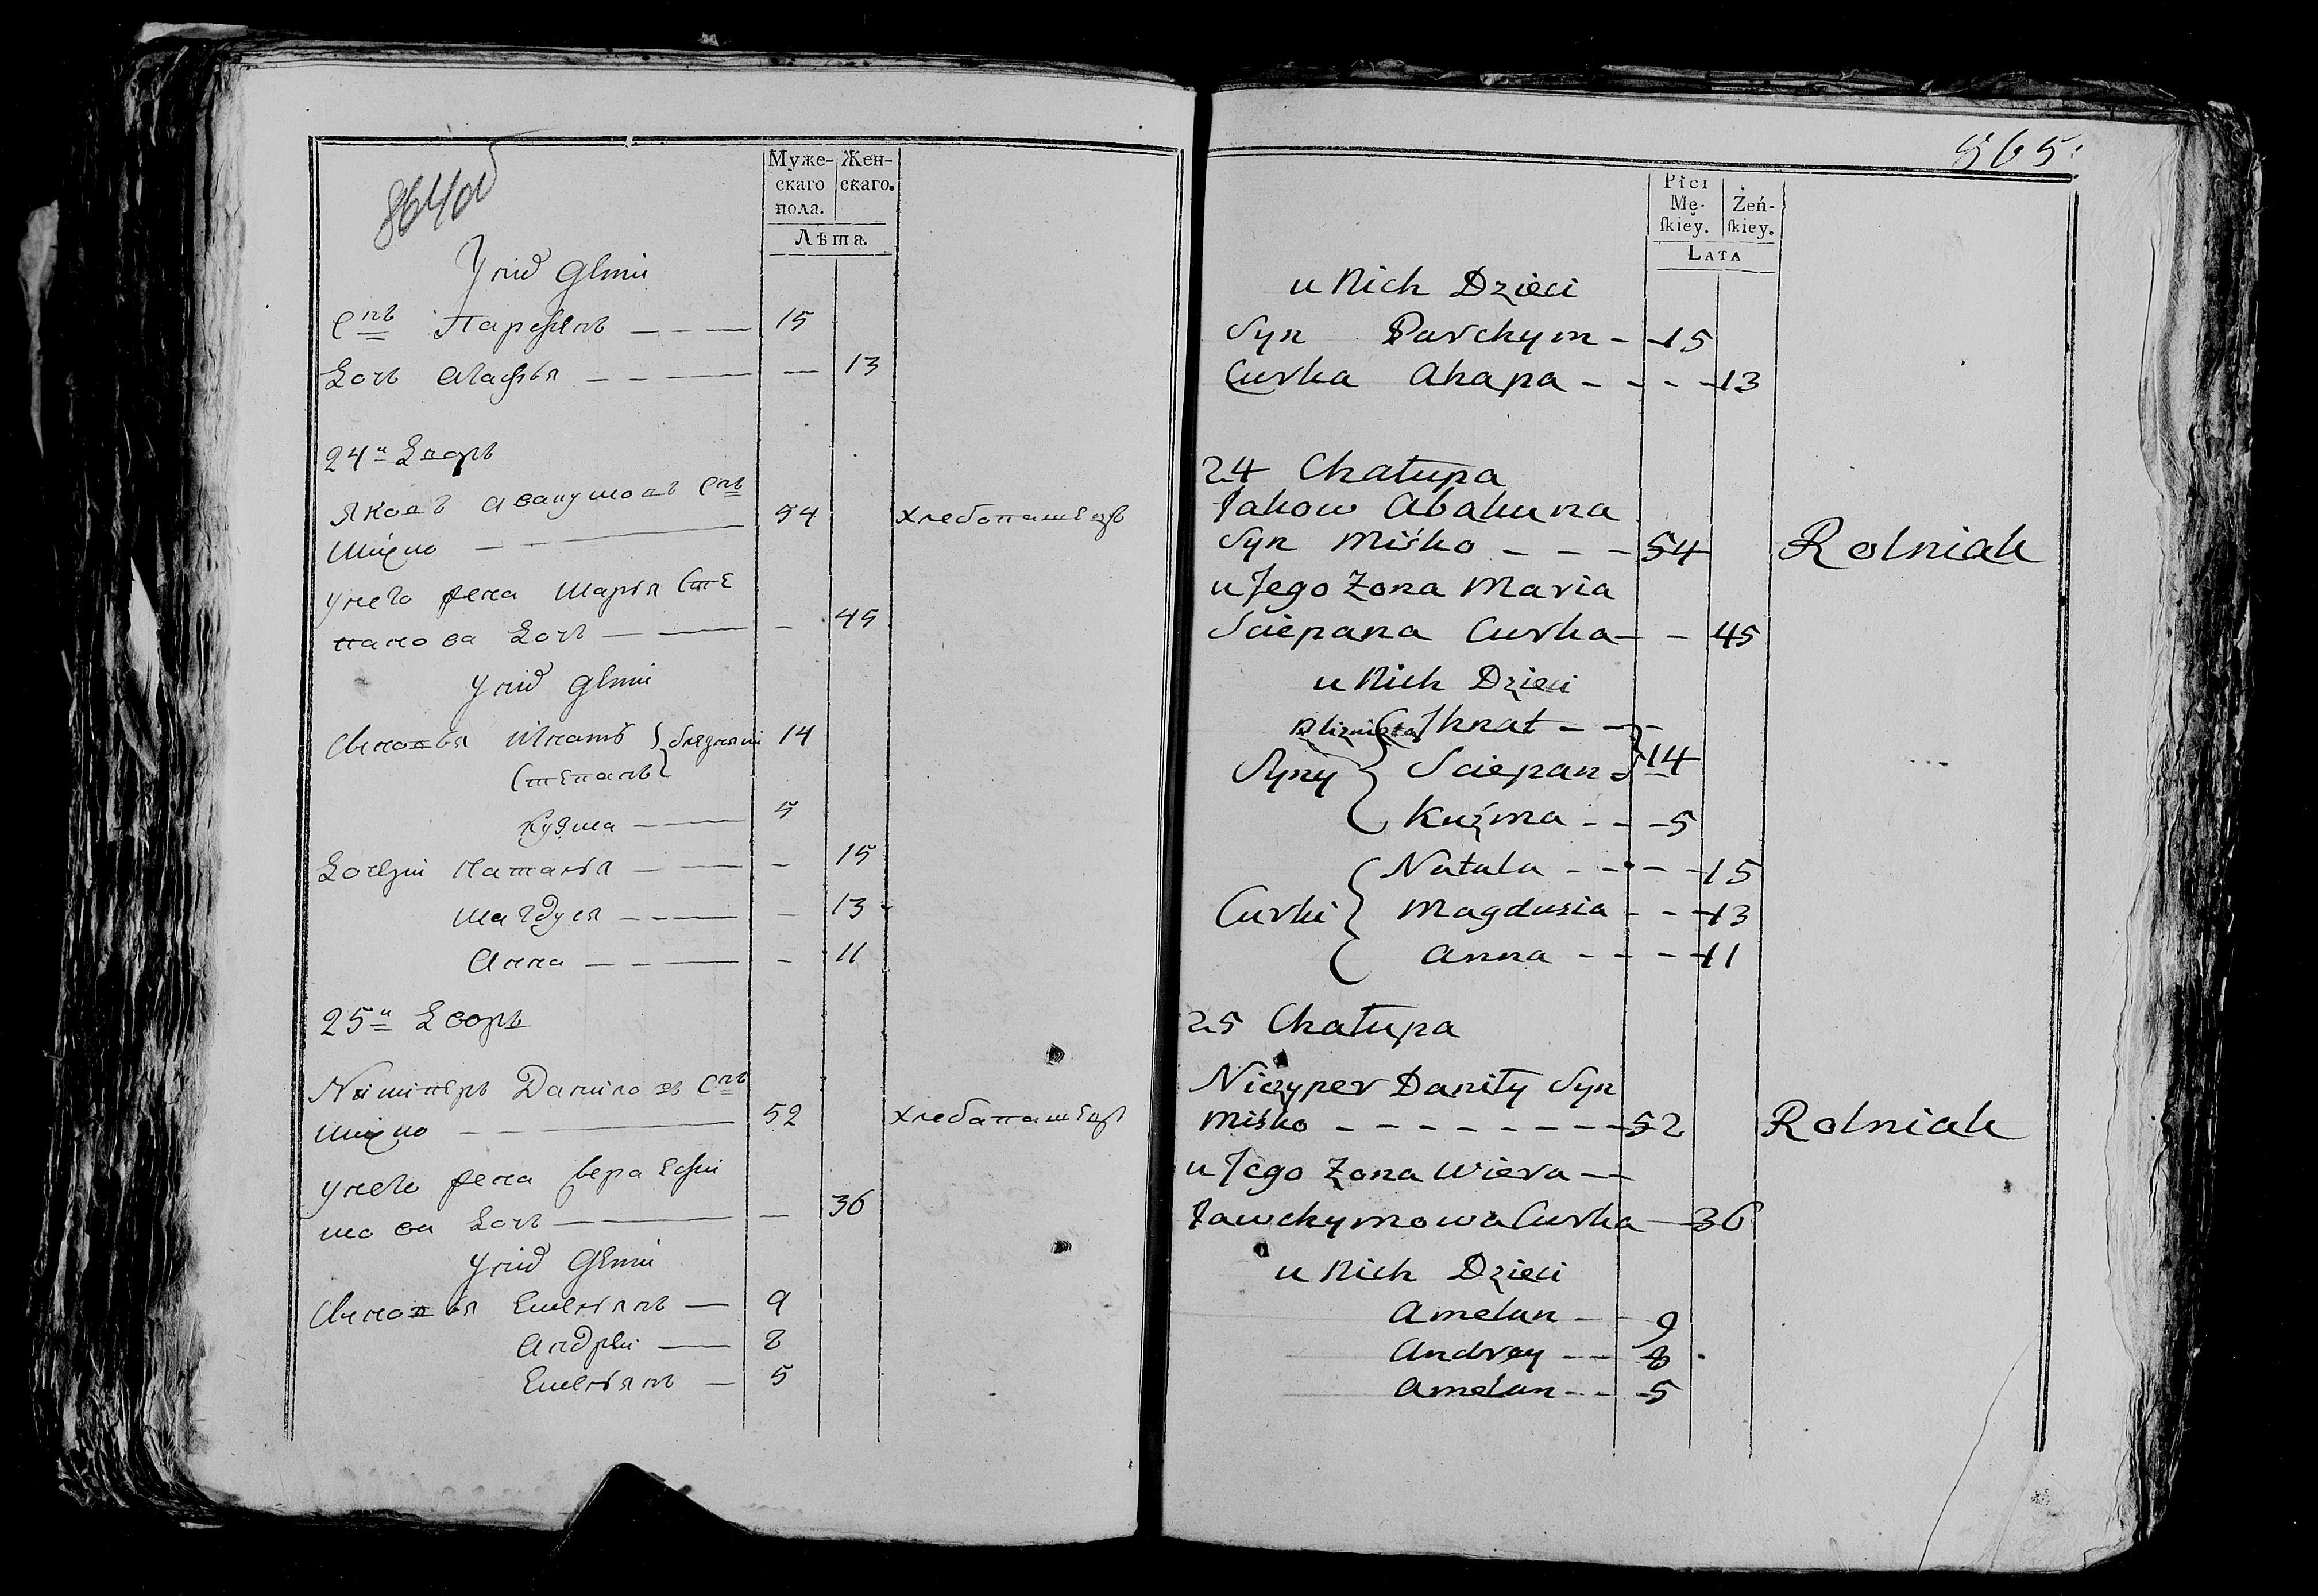 864об
Муже-
скаго
пола.
Жен-
скаго.
Лѣта.
У нихъ дѣти
Снъ Парфенъ — 15
Дочь Агафья — 13
24й Дворъ
Яковъ Авакумовъ Снъ
Мишко — 54 хлебопашецъ
У него жена Марья Сте
панова Дочь — 45
У нихъ дѣти
Сыновья Игнатъ } близняки 14
Степанъ
Кузма — 5
Дочери Наталья — 15
Магдуся — 13
Анна — 11
25й Дворъ
Ничиперъ Даниловъ Снъ
Мишко — 52 хлебопашецъ
У него жена Вера Ефи
мова Дочь — 36
У нихъ дѣти
Сыновья Емельянъ — 9
Андрѣй — 8
Емельянъ — 5
865.
Płci
Mę-
ſkiey.
Żeń-
ſkiey.
LATA
u Nich Dzieci
Syn Parchym - 15
Curka Ahapa - 13
24 Chałupa
Jakow Abakuma
Syn Miśko - 54 Rolniak
u Jego Zona Maria
Sciepana Curka - 45
u Nich Dzieci
Bliznięta Ihnat -
Syny { Sciepan } 14
Kuźma - 5
Natala - 15
Curki { Magdusia - 13
Anna - 11
25 Chałupa
Niczyper Daniły Syn
Miśko - 52 Rolniak
u Jego Zona Wiera —
Jawchymowa Curka - 36
u Nich Dzieci
Amelan - 9
Andrey - 8
Amelan - 5